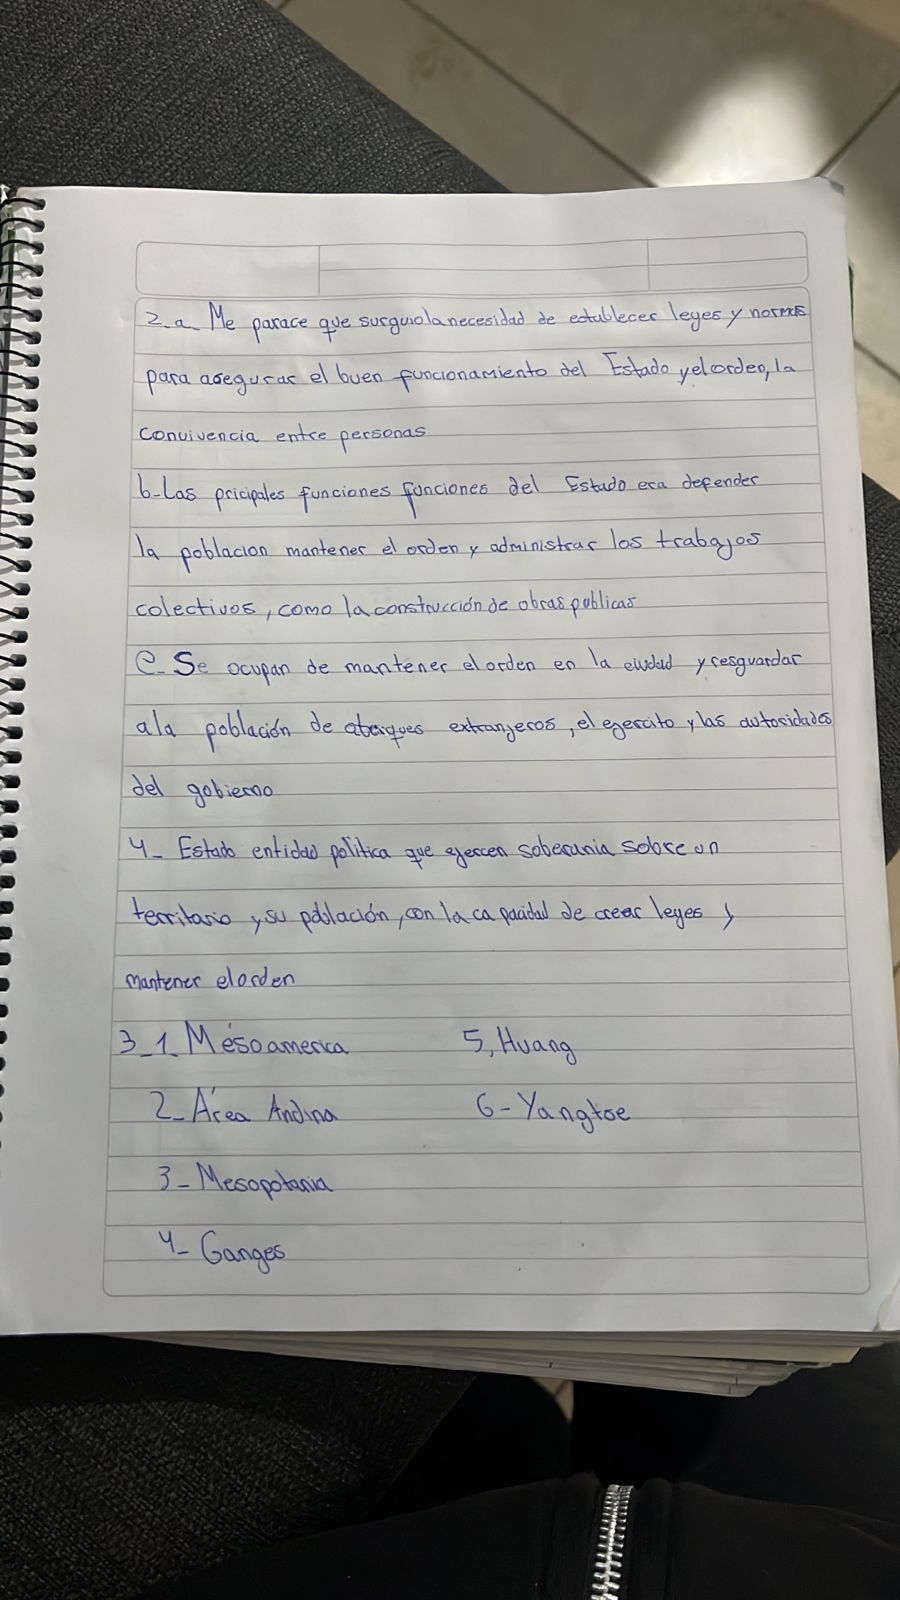 2-a- Me parace que surguio la necesidad de establecer leyes y normas
para asegurar el buen funcionamiento del Estado y el orden, la
convivencia entre personas
b-Las pricipales funciones funciones del Estado era defender
la poblacion mantener el orden y administrar los trabajos
colectivos, como la construcción de obras publicas
C-Se ocupan de mantener el orden en la ciudad y resguardar
a la población de ataques extranjeros, el ejercito y las autoridades
del gobierno
4- Estado entidad política que ejercen soberania sobre un
territorio y su población, con la capacidad de crear leyes y
mantener el orden
3-1- Mesoamerica 5, Huang
2- Área Andina 6- Yangtse
3- Mesopotania
4- Ganges